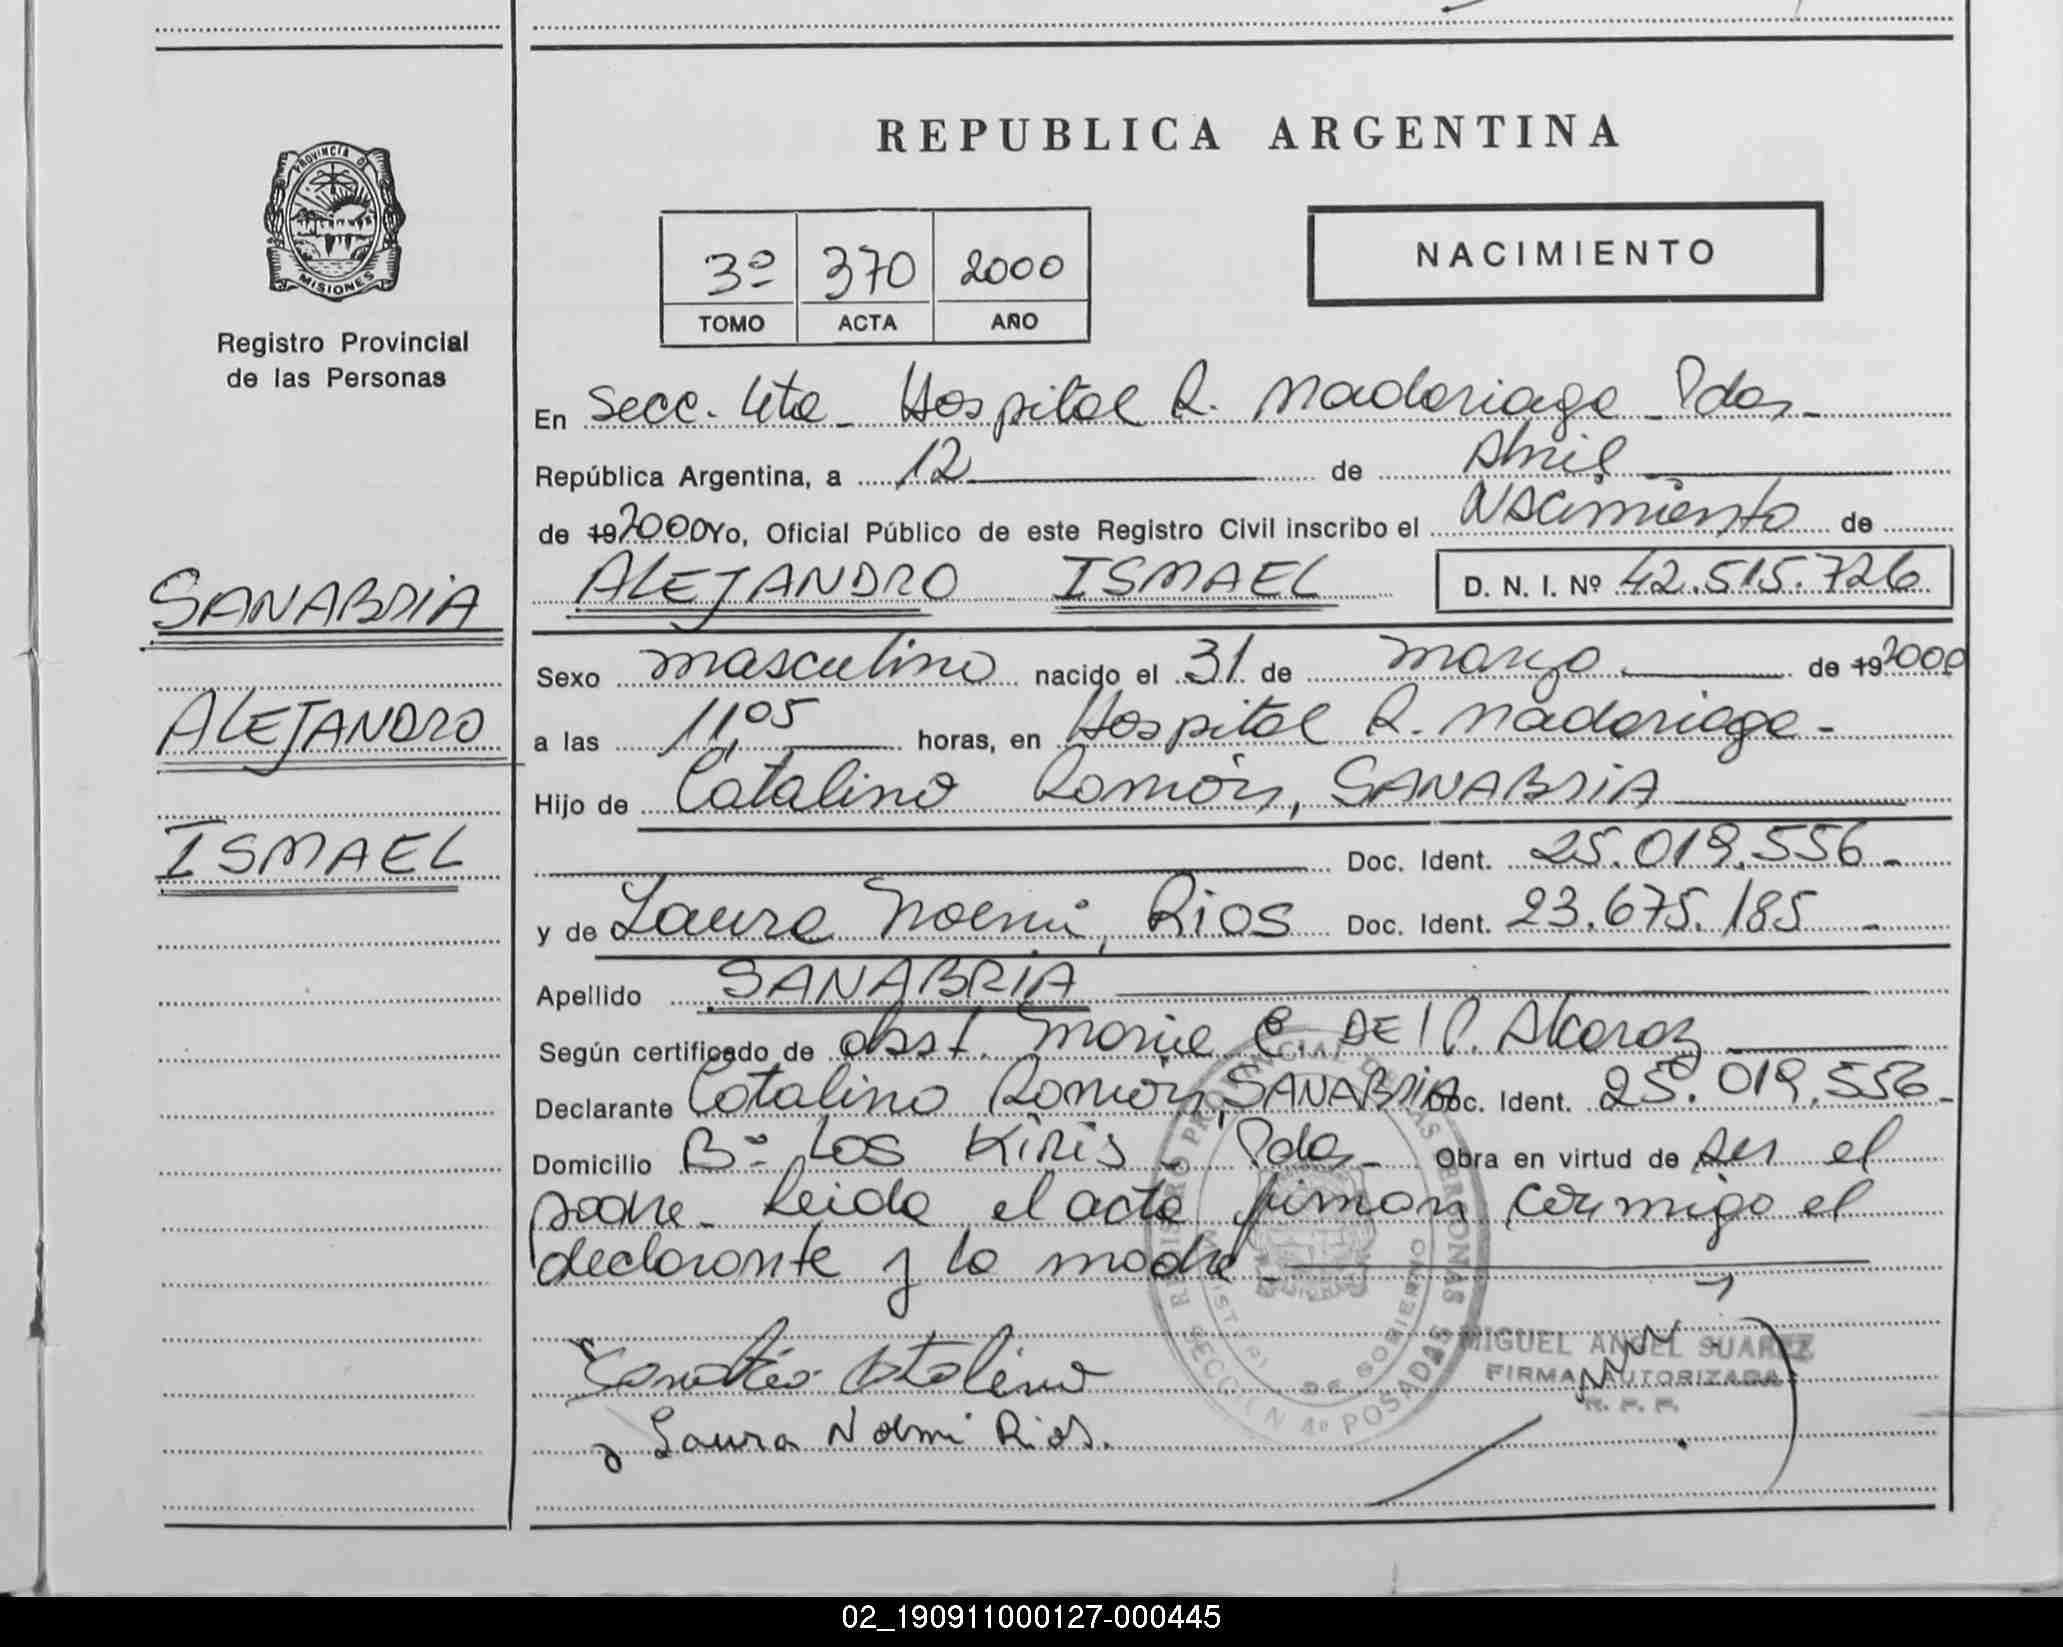 REPUBLICA ARGENTINA
PROVINCIA DE MISIONES
Registro Provincial
de las Personas
3º 370 2000
TOMO ACTA AÑO
NACIMIENTO
En Secc. 4ta - Hospital R. Madariaga - Pdas -
República Argentina, a 12 de Abril
de 19 2000 Yo, Oficial Público de este Registro Civil inscribo el Nacimiento de
ALEJANDRO ISMAEL D. N. I. Nº 42.515.726
SANABRIA
ALEJANDRO
ISMAEL
Sexo masculino nacido el 31 de marzo de 19 2000
a las 11,05 horas, en Hospital R. Madariaga -
Hijo de Catalino Ramón, SANABRIA
Doc. Ident. 25.019.556 -
y de Laura Noemi, Rios Doc. Ident. 23.675.185 -
Apellido SANABRIA
Según certificado de obst. Maria C. DE Alcaraz
Declarante Catalino Ramón, SANABRIA Doc. Ident. 25.019.556 -
Domicilio Bº Los Kiris - Pdas - Obra en virtud de ser el
padre - Leida el acta firman conmigo el
declarante y la madre -
REGISTRO PROVINCIAL DE LAS PERSONAS
DE GOBIERNO
SECCION 4º POSADAS
MIGUEL ANGEL SUAREZ
FIRMA AUTORIZADA
R. P. P.
Sanabria Catalino
Laura Noemi Rios.
02_190911000127-000445